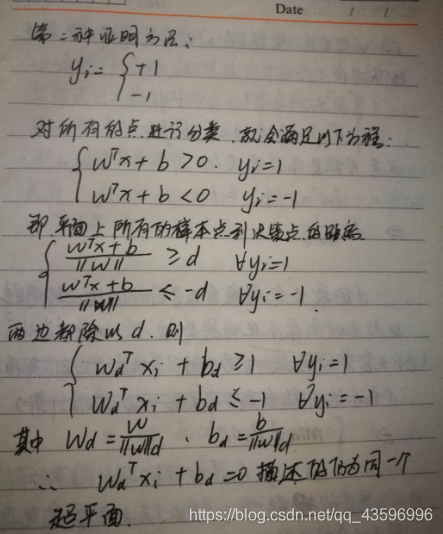 Date / /
第二种证明方法:
yi= { +1
-1
对所有的点进行分类,就会满足以下方程:
{ wᵀx + b >0. yi=1
wᵀx + b <0 yi=-1
即平面上所有的样本点到决策点的距离
{ wᵀx+b / ||w|| ≥ d ∀yi=1
wᵀx+b / ||w|| ≤ -d ∀yi=-1.
两边都除以d.则
{ wdᵀ xi + bd ≥1 ∀yi=1
wdᵀ xi + bd ≤ -1 ∀yi=-1
其中 wd = w / ||w||d 、 bd = b / ||w||d
∴ wdᵀ xi + bd =0 描述的仍为同一个
超平面.
https://blog.csdn.net/qq_43596996